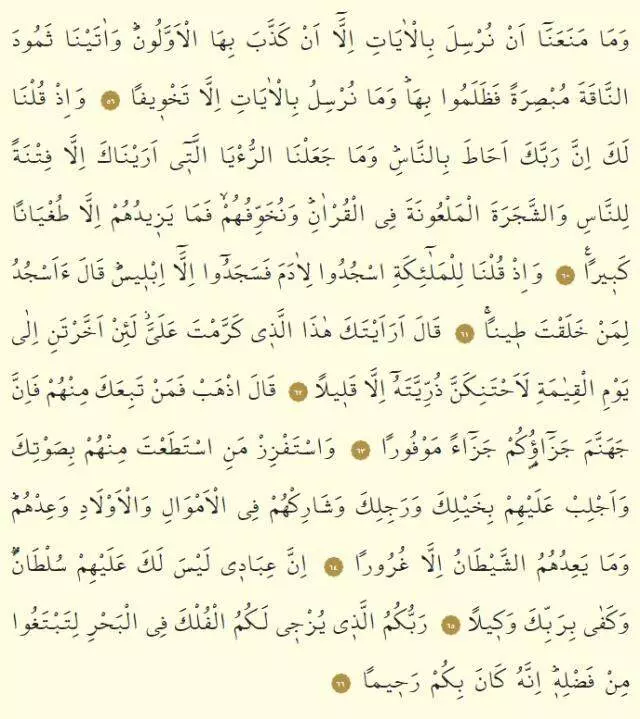 وَمَا مَنَعَنَٓا اَنْ نُرْسِلَ بِالْاٰيَاتِ اِلَّٓا اَنْ كَذَّبَ بِهَا الْاَوَّلُونَۜ وَاٰتَيْنَا ثَمُودَ
النَّاقَةَ مُبْصِرَةً فَظَلَمُوا بِهَاۜ وَمَا نُرْسِلُ بِالْاٰيَاتِ اِلَّا تَخْو۪يفًا ﴿٥٩﴾ وَاِذْ قُلْنَا
لَكَ اِنَّ رَبَّكَ اَحَاطَ بِالنَّاسِۜ وَمَا جَعَلْنَا الرُّءْيَا الَّت۪ٓي اَرَيْنَاكَ اِلَّا فِتْنَةً
لِلنَّاسِ وَالشَّجَرَةَ الْمَلْعُونَةَ فِي الْقُرْاٰنِۜ وَنُخَوِّفُهُمْۙ فَمَا يَز۪يدُهُمْ اِلَّا طُغْيَانًا
كَب۪يرًا۟ ﴿٦٠﴾ وَاِذْ قُلْنَا لِلْمَلٰٓئِكَةِ اسْجُدُوا لِاٰدَمَ فَسَجَدُٓوا اِلَّٓا اِبْل۪يسَۜ قَالَ ءَاَسْجُدُ
لِمَنْ خَلَقْتَ ط۪ينًا۟ ﴿٦١﴾ قَالَ اَرَاَيْتَكَ هٰذَا الَّذ۪ي كَرَّمْتَ عَلَيَّۘ لَئِنْ اَخَّرْتَنِ اِلٰى
يَوْمِ الْقِيٰمَةِ لَاَحْتَنِكَنَّ ذُرِّيَّتَهُٓ اِلَّا قَل۪يلًا ﴿٦٢﴾ قَالَ اذْهَبْ فَمَنْ تَبِعَكَ مِنْهُمْ فَاِنَّ
جَهَنَّمَ جَزَٓاؤُ۬كُمْ جَزَٓاءً مَوْفُورًا ﴿٦٣﴾ وَاسْتَفْزِزْ مَنِ اسْتَطَعْتَ مِنْهُمْ بِصَوْتِكَ
وَاَجْلِبْ عَلَيْهِمْ بِخَيْلِكَ وَرَجِلِكَ وَشَارِكْهُمْ فِي الْاَمْوَالِ وَالْاَوْلَادِ وَعِدْهُمْۜ
وَمَا يَعِدُهُمُ الشَّيْطَانُ اِلَّا غُرُورًا ﴿٦٤﴾ اِنَّ عِبَاد۪ي لَيْسَ لَكَ عَلَيْهِمْ سُلْطَانٌۜ
وَكَفٰى بِرَبِّكَ وَك۪يلًا ﴿٦٥﴾ رَبُّكُمُ الَّذ۪ي يُزْج۪ي لَكُمُ الْفُلْكَ فِي الْبَحْرِ لِتَبْتَغُوا
مِنْ فَضْلِه۪ۜ اِنَّهُ كَانَ بِكُمْ رَح۪يمًا ﴿٦٦﴾